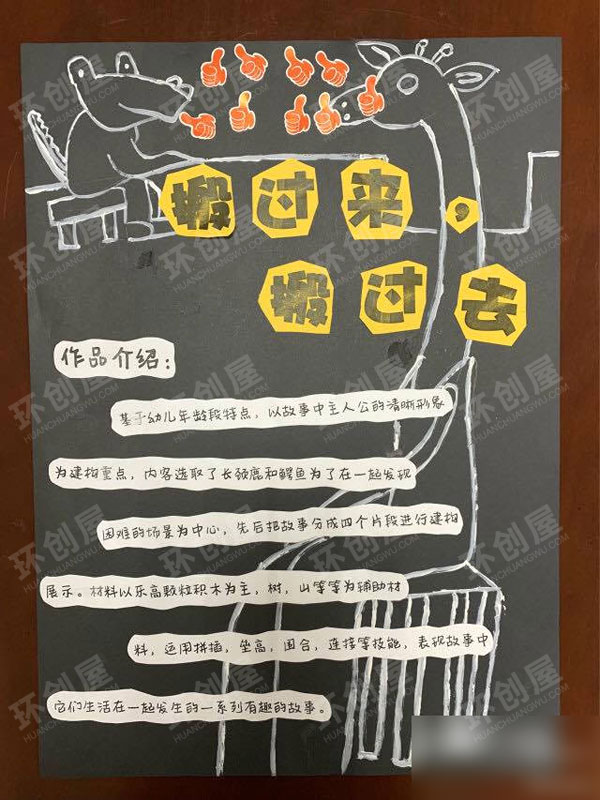 搬过来，
搬过去
作品介绍：
基于幼儿年龄段特点，以故事中主人公的清晰形象
为建构重点，内容选取了长颈鹿和鳄鱼为了在一起发现
困难的场景为中心，先后把故事分成四个片段进行建构
展示。材料以乐高颗粒积木为主，树，山等等为辅助材
料，运用拼插，垒高，围合，连接等技能，表现故事中
它们生活在一起发生的一系列有趣的故事。
环创屋
HUANCHUANGWU.COM